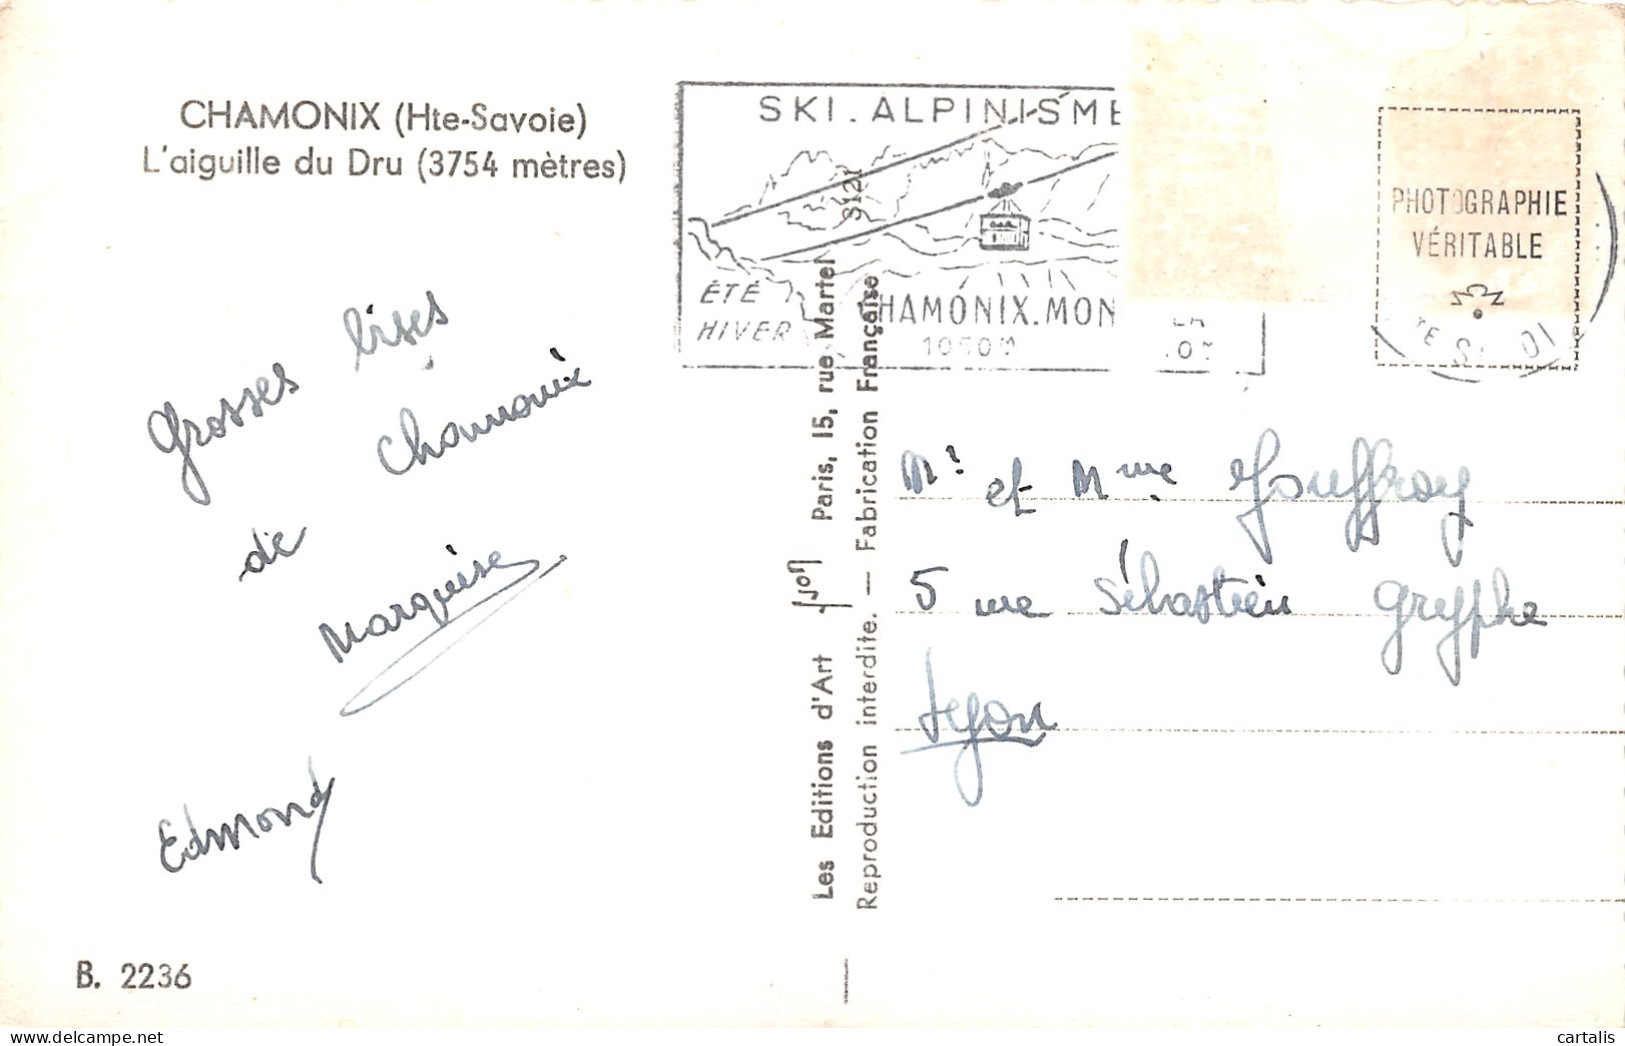 CHAMONIX (Hte-Savoie)
L'aiguille du Dru (3754 mètres)
Grosses bises
de Chamonix
Marquise
Edmond
B. 2236
SKI. ALPINISME
ÉTÉ
HIVER
HAMONIX. MON
3121
Les Editions d'Art Yvon Paris, 15, rue Martel
Reproduction interdite. — Fabrication Française
PHOTOGRAPHIE
VÉRITABLE
Mr et Mme Jouffroy
5 rue Sébastien Gryphe
Lyon
cartalis